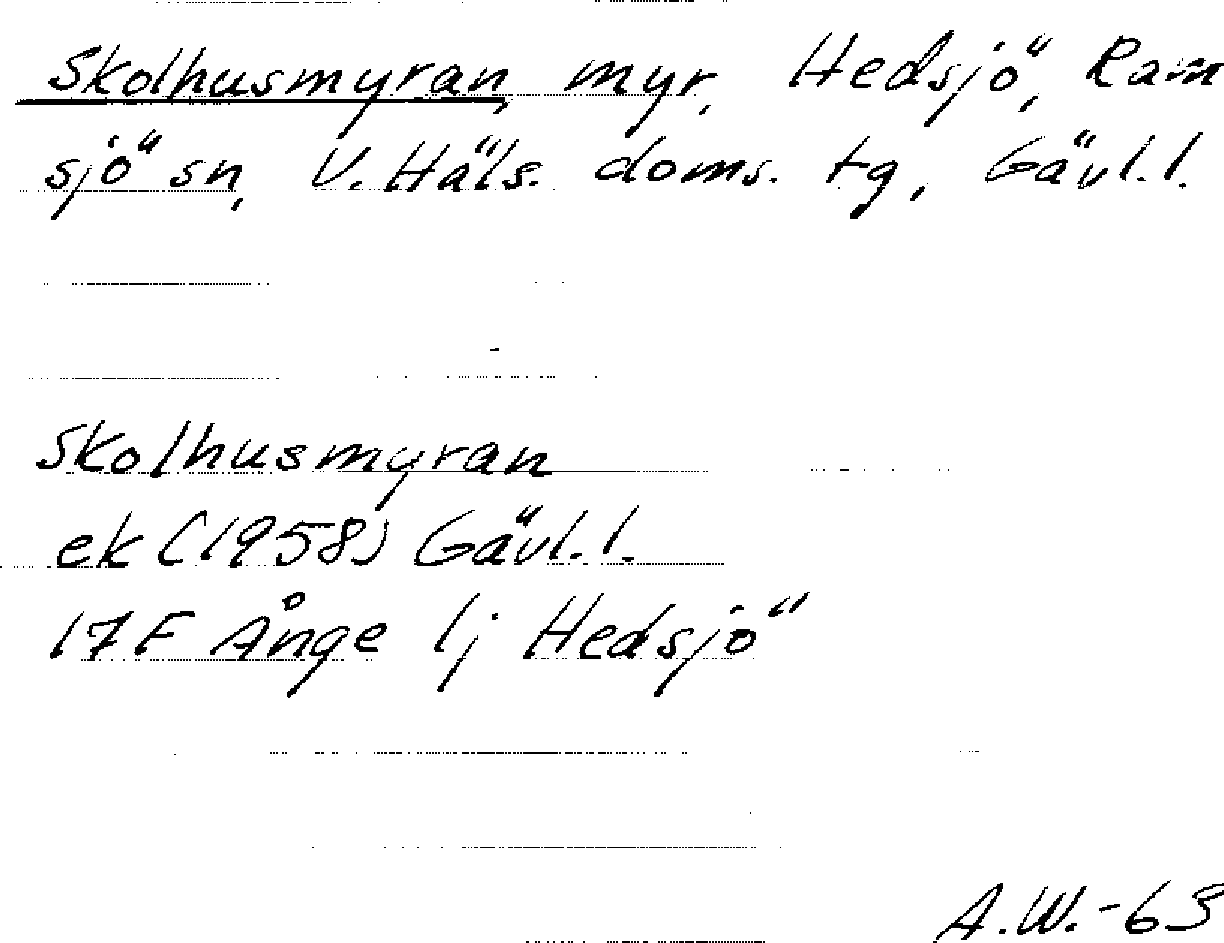 Skolhusmyran, myr, Hedsjö, Ram
sjö sn, V. Häls. doms. tg, Gävl. l.
Skolhusmyran
ek (1958) Gävl. l.
17F Ånge 1j Hedsjö
A.W.-63